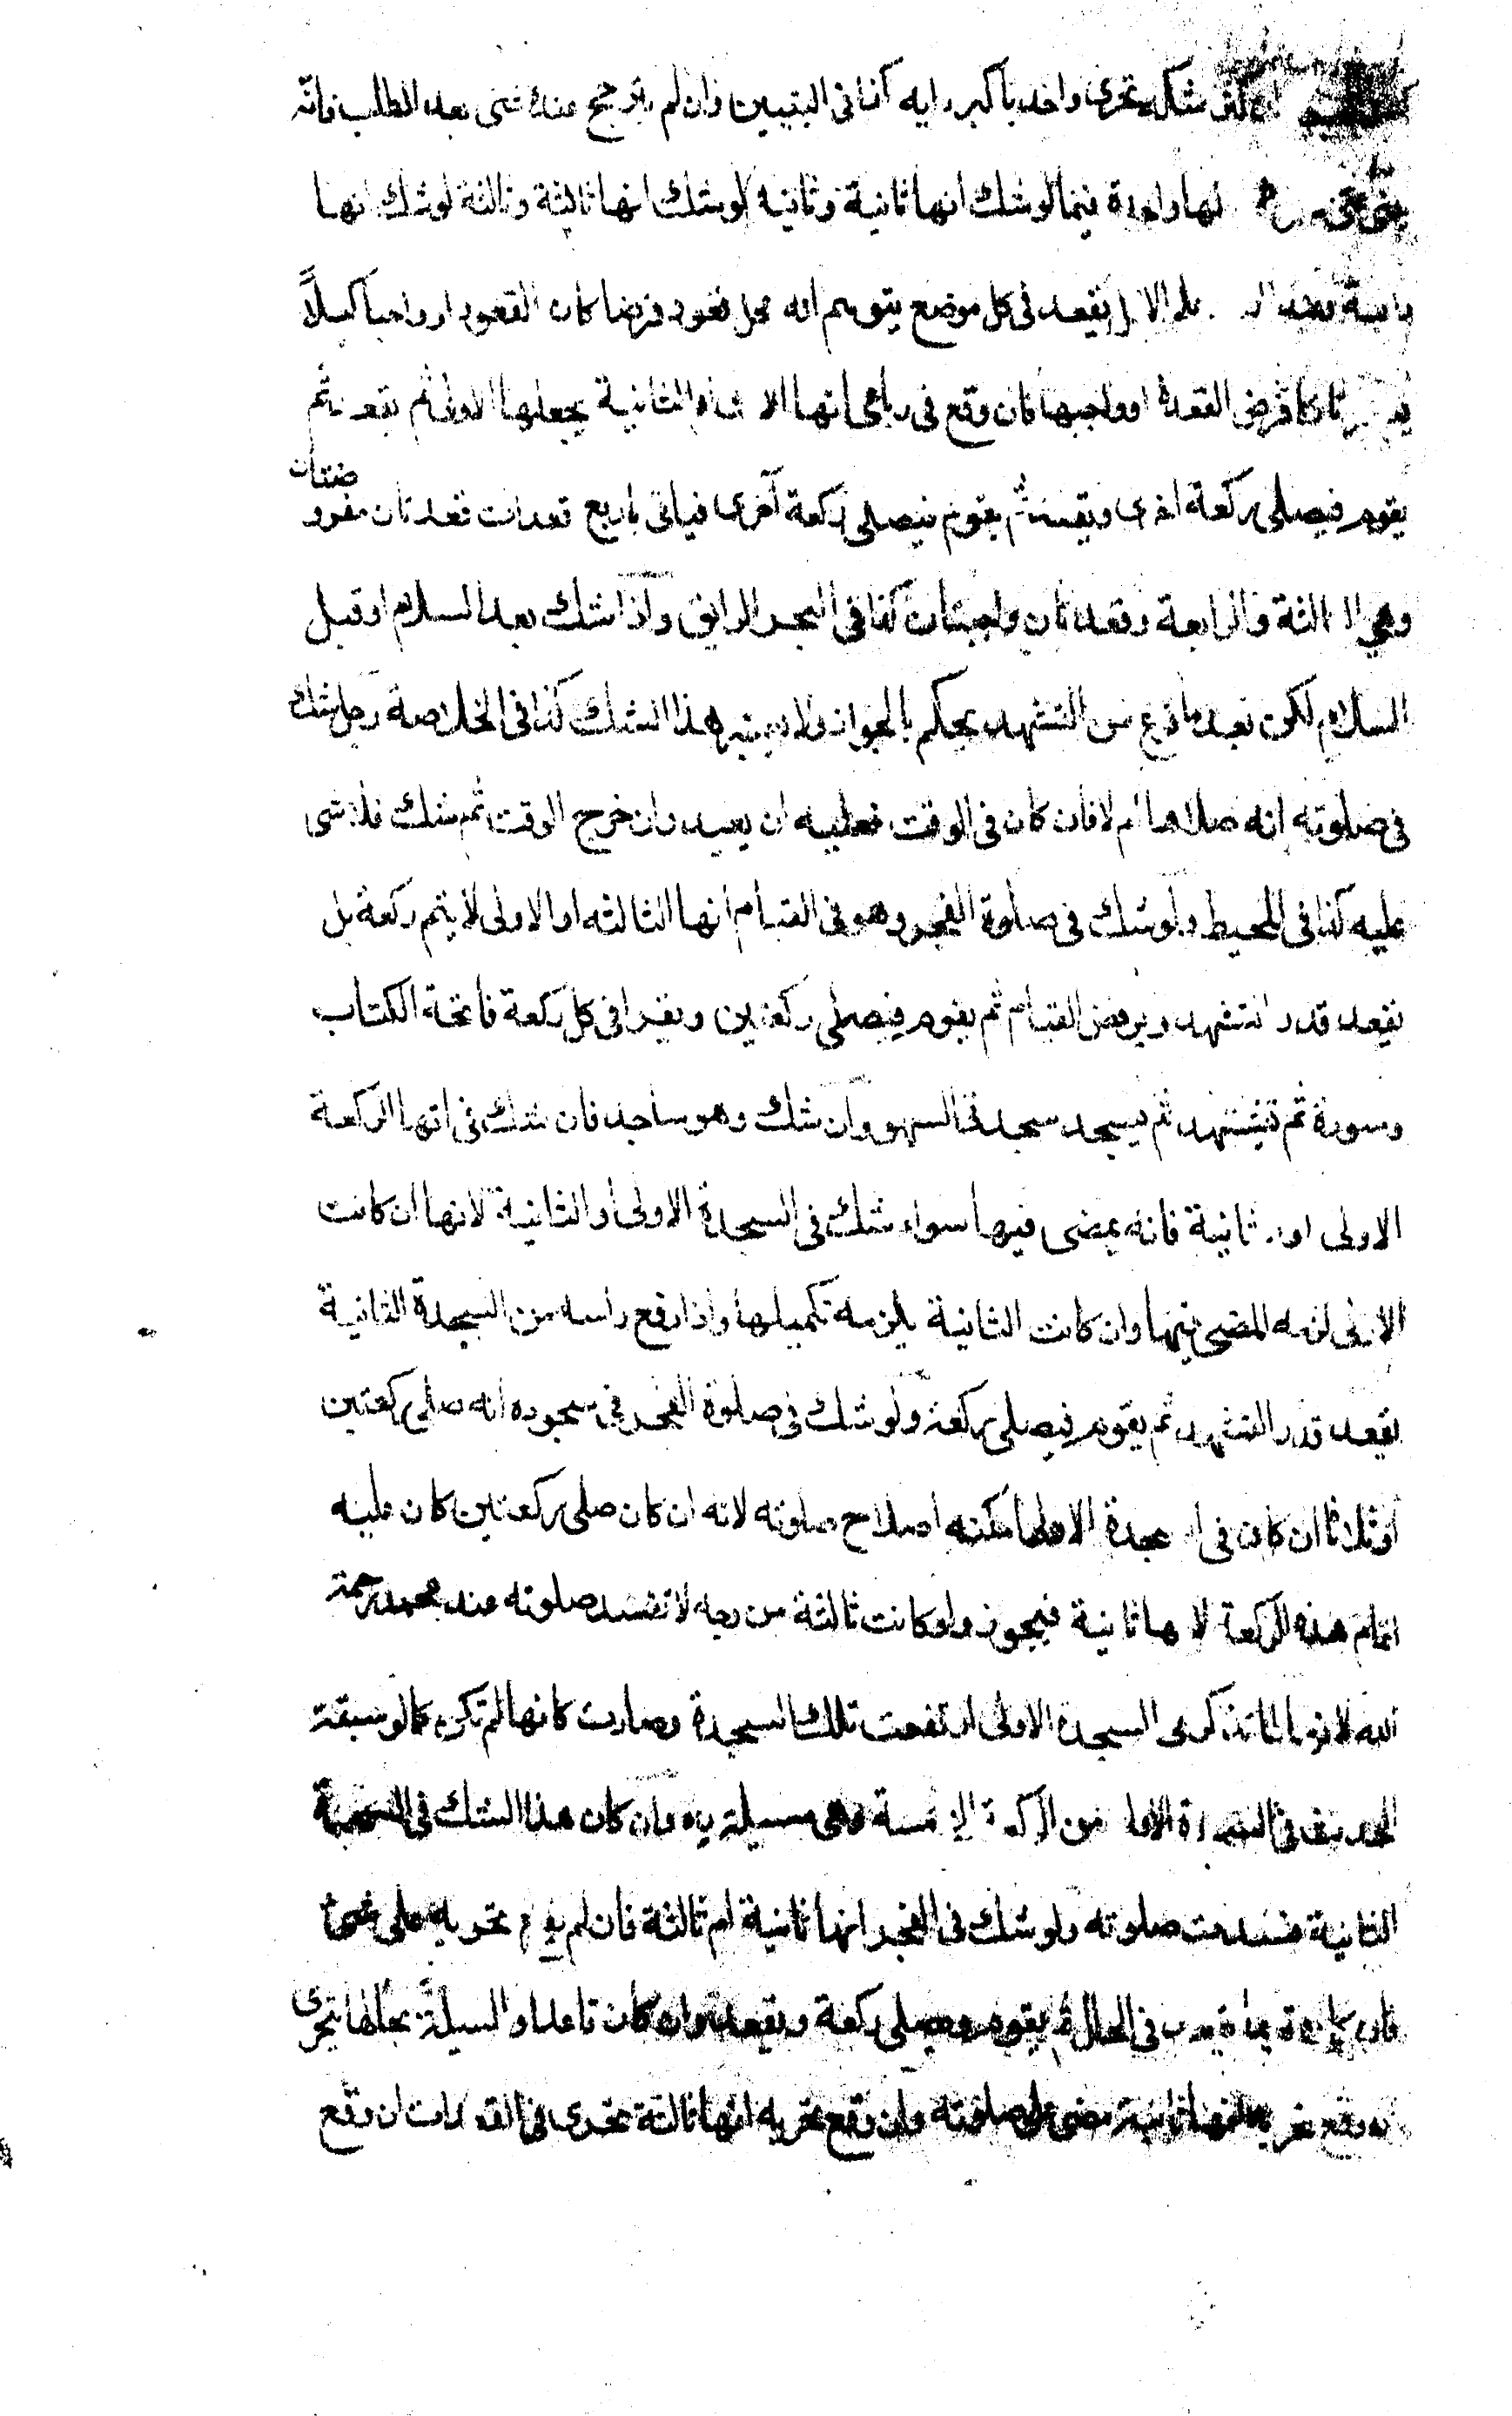 كثر شكه تحرى واخذ باكبر رايه كذا فى التبيين وان لم يترجح عنده شى بعد الطلب فانه
واحدة فيما لوشك انها ثانية وثانيه لوشك انها ثالثة وثالثة لوشك انها
يقعد فى كل موضع يتوهم انه محل قعود فرضا كان القعود او واجبا كيلاً
تاركا فرض القعدة اوواجبها فان وقع فى رباعى انها الاولى او الثانية يجعلها الاولى ثم يقعد ثم
يقوم فيصلى ركعة اخرى ويقعد ثم يقوم فيصلى ركعة اخرى فياتى باربع قعدات قعدتان مفروضتان
وهى الثالثة والرابعة وقعدتان واجبتان كذا فى البحر الرايق واذا شك بعد السلام اوقبل
السلام لكن بعد ما فرغ من التشهد يحكم بالجواز ولا يعتبر هذا الشك كذا فى الخلاصة رجل شك
فى صلوته انه صلاها ام لا فان كان فى الوقت فعليه ان يعيد وان خرج الوقت ثم شك فلا شى
عليه كذا فى المحيط ولوشك فى صلوة الفجر وهو فى القيام انها الثالثه او الاولى لا يتم ركعة بل
يقعد قدر التشهد ويرفض القيام ثم يقوم فيصلى ركعتين ويقرا فى كل ركعة فاتحة الكتاب
وسورة ثم يتشهد ثم يسجد سجدتى السهو وان شك وهو ساجد فان شك فى انها الركعة
الاولى او ثانية فانه يمضى فيها سواء شك فى السجدة الاولى او الثانية لانها ان كانت
الاولى لزمه المضى فيها وان كانت الثانية يلزمه تكميلها واذا رفع راسه من السجدة الثانية
يقعد قدر التشهد ثم يقوم فيصلى ركعة ولوشك فى صلوة الفجر فى سجوده انه صلى ركعتين
او ثلاثا ان كان فى السجدة الاولى امكنه اصلاح صلوته لانه ان كان صلى ركعتين كان عليه
اتمام هذه الركعة لانها ثانية فيجوز ولو كانت ثالثة من وجه لا تفسد صلوته عند محمد رحمة
الله لانه لما تذكر فى السجدة الاولى ارتفعت تلك السجدة وصارت كانها لم تكن كما لو سبقه
الحدث فى السجدة الاولى من الركعة الخامسة وهى مسيلة زه وان كان هذا الشك فى السجدة
الثانية فسدت صلوته ولوشك فى الفجر انها ثانية ام ثالثة فان لم يقع تحريه على شى
فان كان قايما يقعد فى الحال ثم يقوم ويصلى ركعة ويقعد وان كان قاعدا والمسيلة بحالها يتحرى
ان وقع تحريه انها ثانية مضى على صلوته وان وقع تحريه انها ثالثة تحرى فى القعدات ان وقع